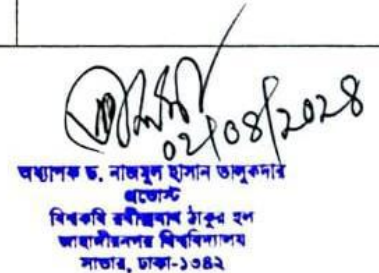 ০২/০৪/২০২৪
অধ্যাপক ড. নাজমুল হাসান তালুকদার
প্রভোস্ট
বিশ্বকবি রবীন্দ্রনাথ ঠাকুর হল
জাহাঙ্গীরনগর বিশ্ববিদ্যালয়
সাভার, ঢাকা-১৩৪২